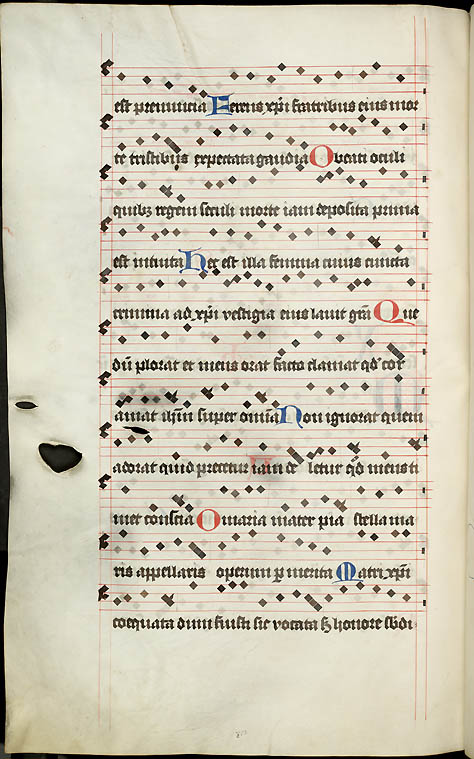 est prenuncia Ferens xpi fratribus eius mor
te tristibus expectata gaudia O beati oculi
quibz regem seculi morte iam deposita prima
est intuita Hec est illa femina cuius cuncta
crimina ad xpi vestigia eius lavit gra Que
du plorat et mens orat facto clamat qd cor
amat ihm super omia Non ignorat quem
adorat quid precetur iam de letur qd mens ti
met conscia O maria mater pia stella ma
ris appellaris operum p merita Matri xpi
coequata dum fuisti sic vocata sz honore sbdi